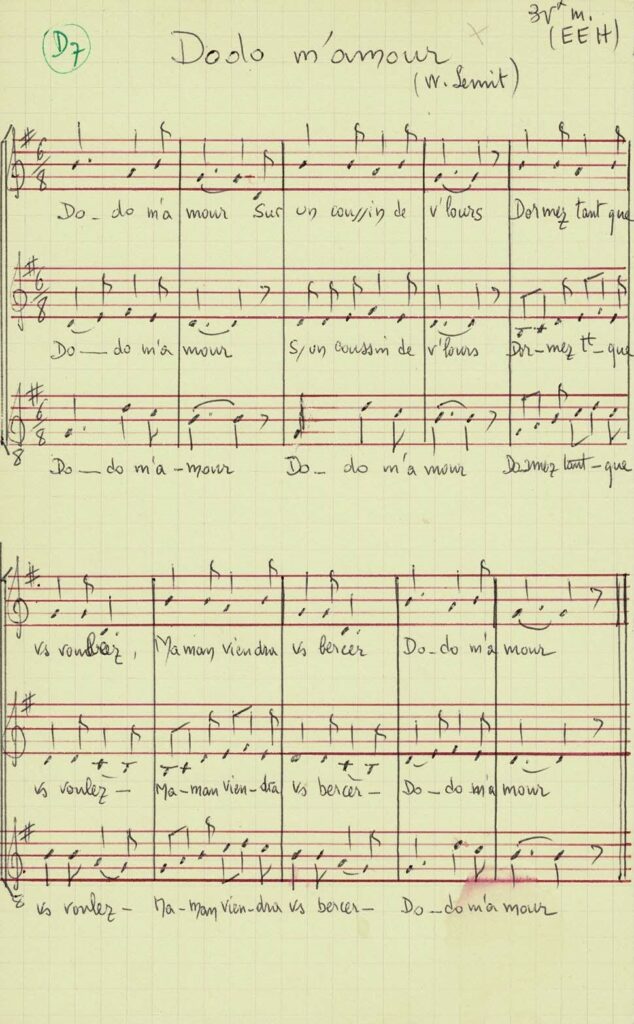 D7
Dodo m'amour
3 vx m.
(EEH)
(W. Lemit)
6/8
Do_do m'a mour Sur un coussin de v'lours Dormez tant que
6/8
Do__do m'a mour S/un coussin de v'lours Dor-mez tt-que
6/8
8
Do__do m'a-mour Do_ do m'a mour Dormez tant-que
vs voulez, Maman viendra vs bercer Do_do m'a mour
vs voulez- Ma-man vien-dra vs bercer- Do_do m'a mour
8
vs voulez- Ma-man vien-dra vs bercer- Do_do m'a mour